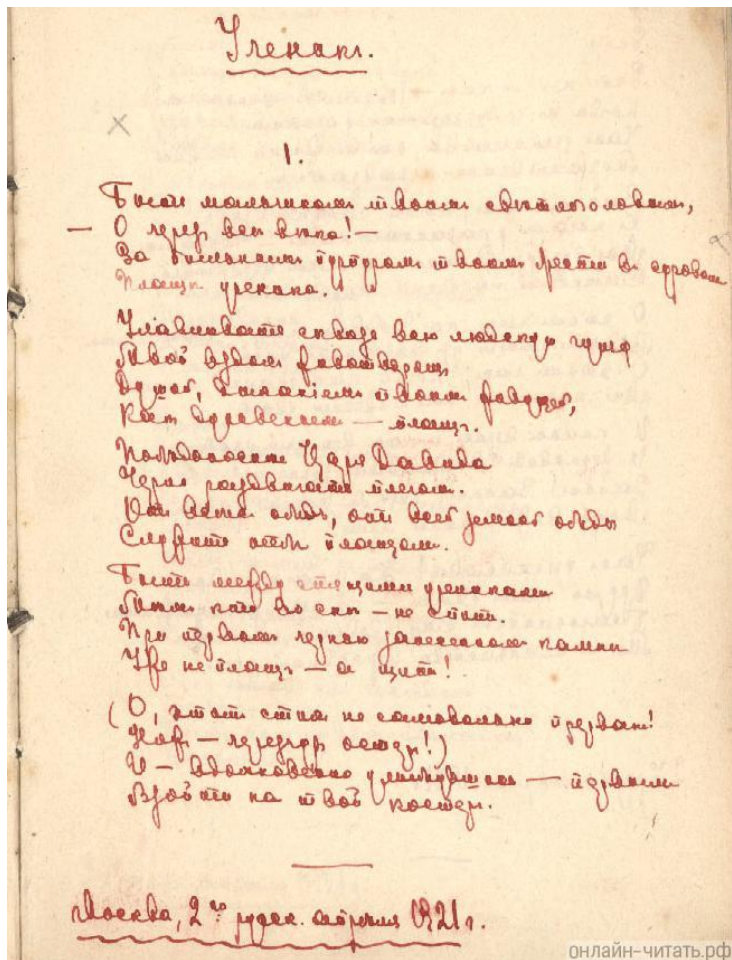 Ученикъ.
1.
Быть мальчикомъ твоимъ свѣтлоголовымъ,
— О черезъ всѣ вѣка! —
За пыльнымъ пурпуромъ твоимъ брести въ суровомъ
Плащѣ ученика.
Улавливать сквозь всю людскую гущу
Твой вздохъ животворящъ
Душой, дыханіемъ твоимъ живущей,
Какъ дуновеньемъ — плащъ.
Побѣдоноснѣй Царя Давида
Чернь раздвигать плечомъ.
Отъ всѣхъ обидъ, отъ всей земной обиды
Служить тебѣ плащомъ.
Быть между спящими учениками
Тѣмъ, кто во снѣ — не спитъ.
При первомъ чернью занесенномъ камнѣ
Уже не плащъ — а щитъ!
(О, этотъ стихъ не самовольно прерванъ!
Ножъ — чересчуръ остеръ!)
И — вдохновенно улыбнувшись — первымъ
Взойти на твой костеръ.
Москва, 2го русск. апрѣля 1921 г.
онлайн-читать.рф